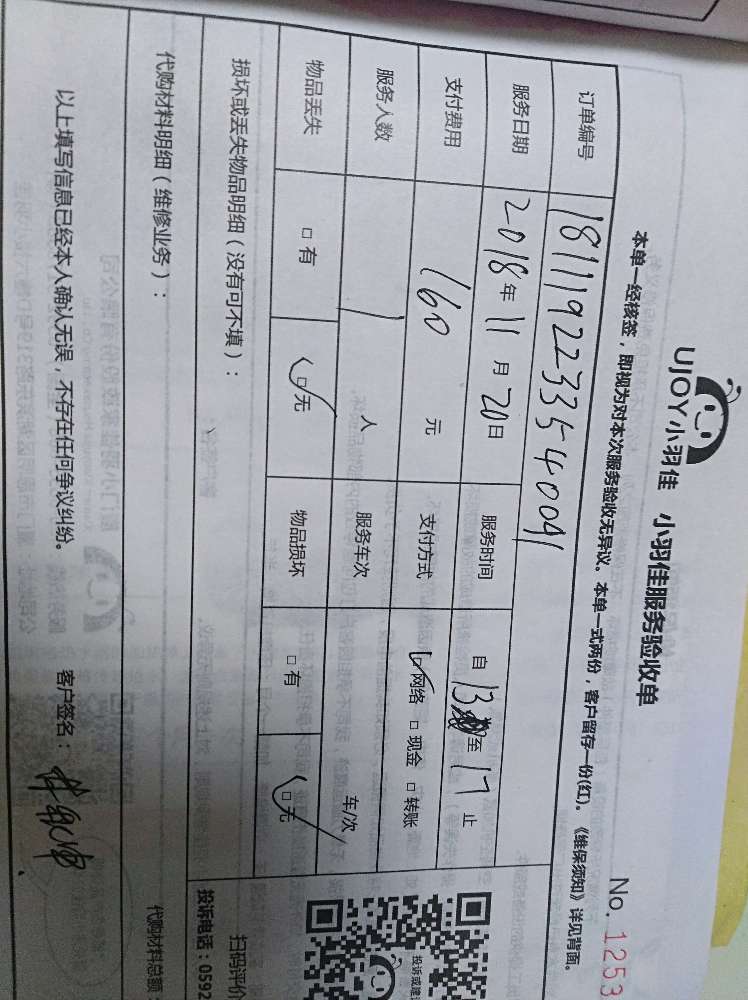 UJOY小羽佳 小羽佳服务验收单
No. 1253
本单一经核签，即视为对本次服务验收无异议。本单一式两份，客户留存一份(红)。《维保须知》详见背面。
订单编号 1811192233540041
服务日期 2018年11月20日 服务时间 自13至17止
支付费用 160元 支付方式 □网络 □现金 □转账
服务人数 1人 服务车次 车/次
物品丢失 □有 □无 物品损坏 □有 □无
损坏或丢失物品明细（没有可不填）：
投诉或建议
扫码评价
投诉电话：0592
代购材料明细（维修业务）：
代购材料总额
以上填写信息已经本人确认无误，不存在任何争议纠纷。 客户签名：